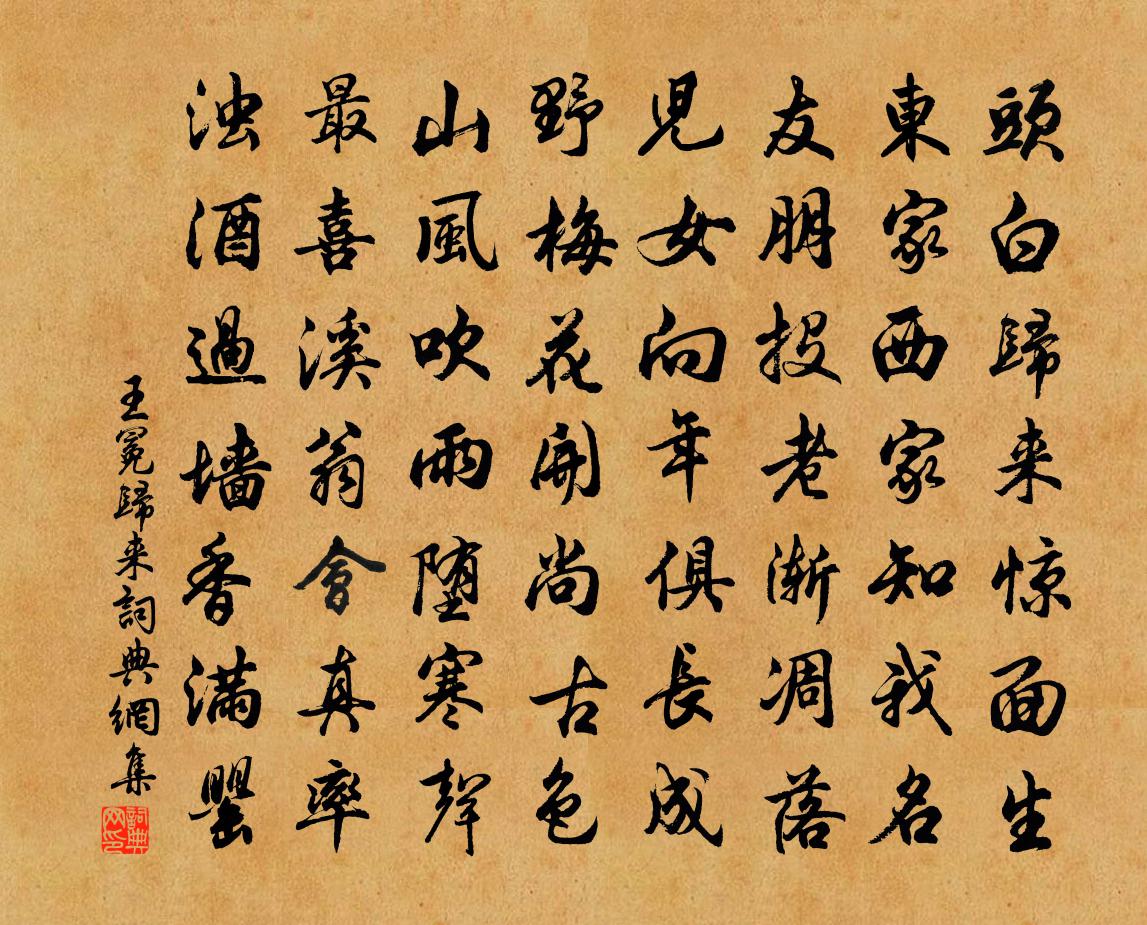 頭白歸来惊面生
東家西家知我名
友朋投老渐凋落
児女向年俱長成
野梅花開尚古色
山風吹雨堕寒聲
最喜溪翁會真率
浊酒過墙香满罂
王冕歸来詞典網集
詞典网印